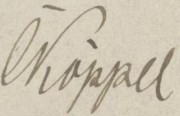 Köppel